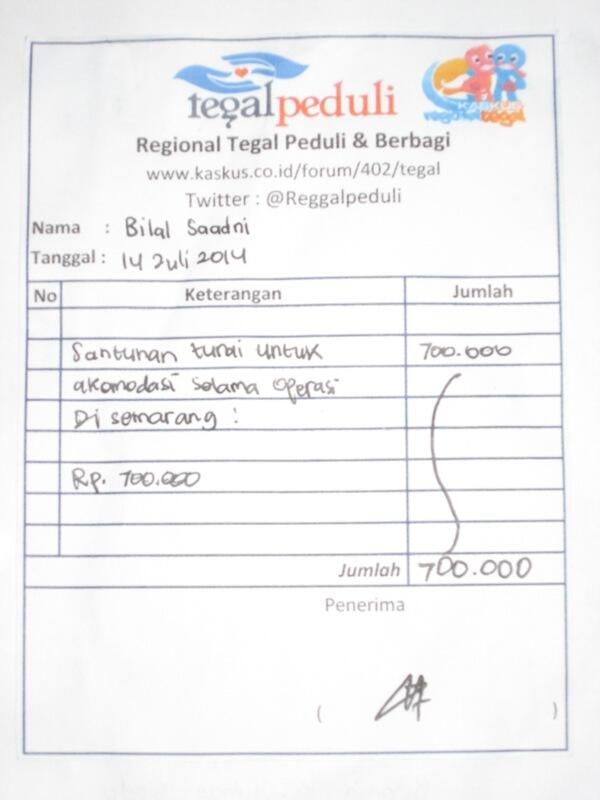 tegalpeduli
KASKUS
regional tegal
Regional Tegal Peduli & Berbagi
www.kaskus.co.id/forum/402/tegal
Twitter : @Reggalpeduli
Nama : Bilal Saadni
Tanggal : 14 Juli 2014
No Keterangan Jumlah
Santunan tunai untuk 700.000
akomodasi selama operasi
Di semarang :
Rp. 700.000
Jumlah 700.000
Penerima
( )